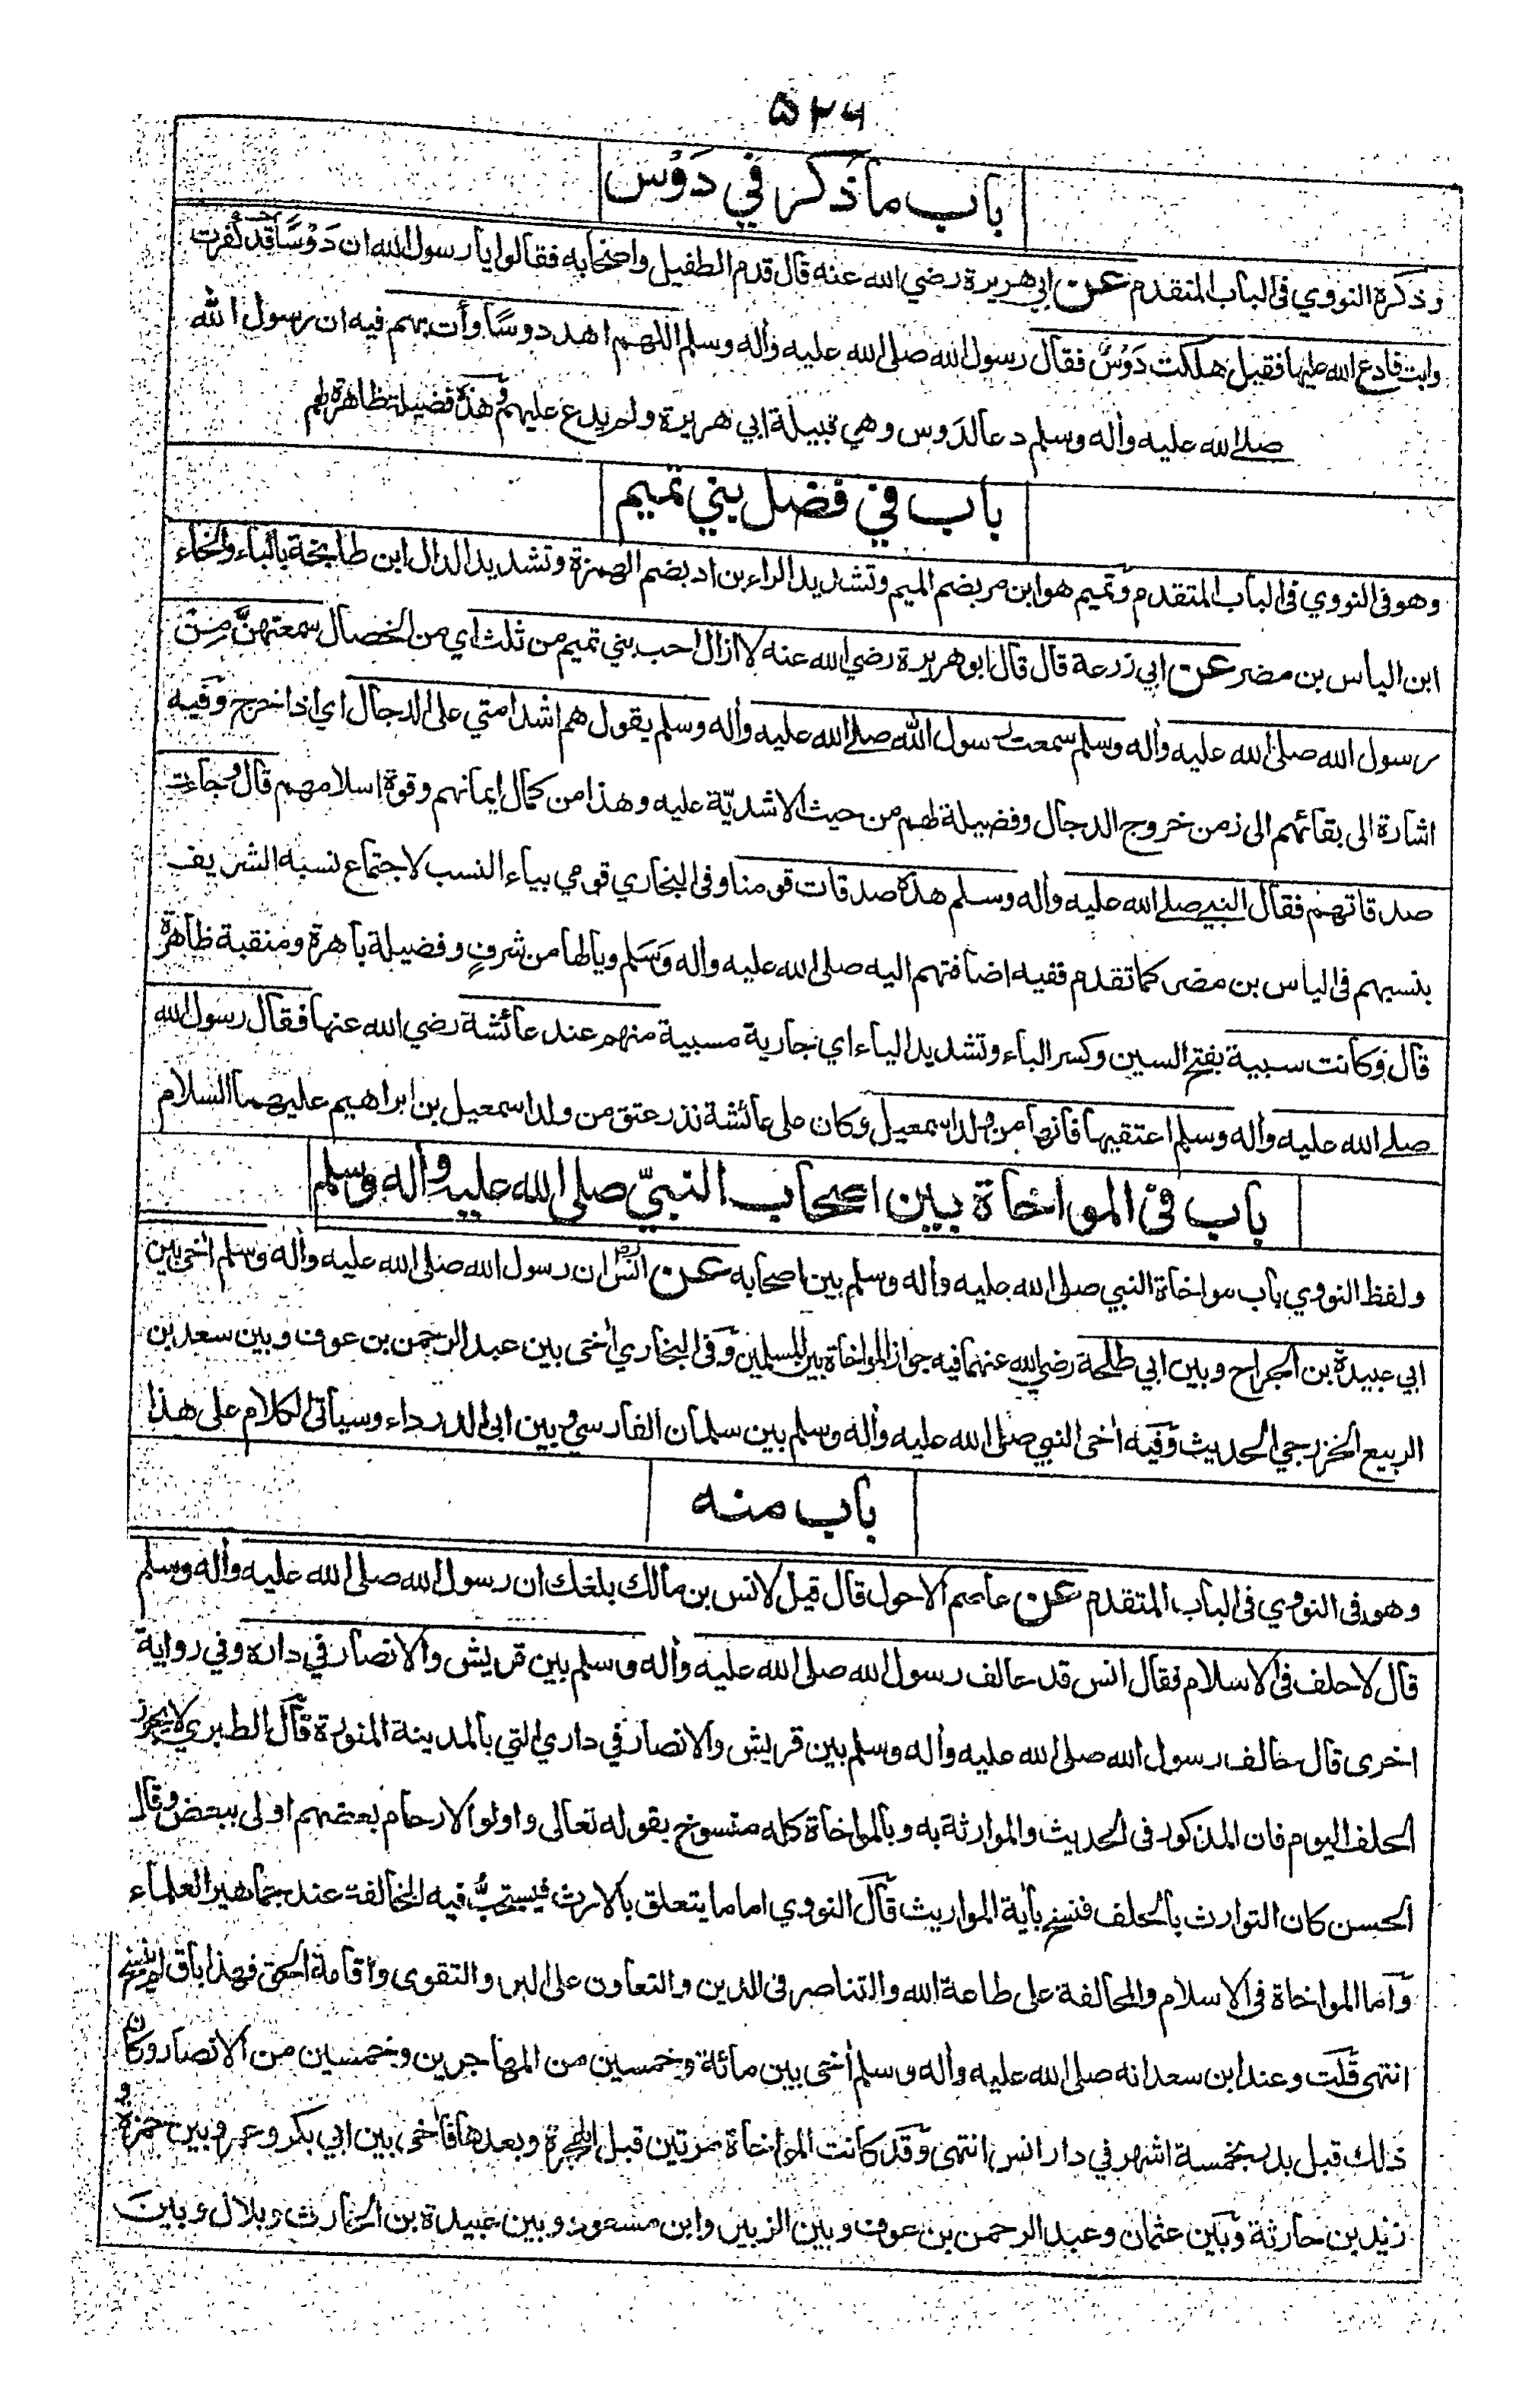 ۵۲۶
باب ماذكر في دَوْس
وذكره النووي فى الباب المتقدم عن ابي هريرة رضي الله عنه قال قدم الطفيل واصحابه فقالوا يا رسول الله ان دَوْسًا قد كفرت
وابت فادع الله عليها فقيل هلكت دَوْسٌ فقال رسول الله صلى الله عليه وأله وسلم اللهم اهد دوسًا وأت بهم فيه ان رسول الله
صلى الله عليه وأله وسلم دعا لدَوس وهي قبيلة ابي هريرة ولم يدع عليهم وهذه فضيلة ظاهرة لهم
باب في فضل بني تميم
وهو فى النووي فى الباب المتقدم وتميم هو ابن مر بضم الميم وتشديد الراء بن اد بضم الهمزة وتشديد الدال ابن طابخة بالباء والخاء
ابن الياس بن مضر عن ابي زرعة قال قال ابو هريرة رضي الله عنه لا ازال احب بني تميم من ثلث اي من الخصال سمعتهنَّ من
رسول الله صلى الله عليه وأله وسلم سمعت رسول الله صلى الله عليه وأله وسلم يقول هم اشد امتي على الدجال اي اذا خرج وفيه
اشارة الى بقائهم الى زمن خروج الدجال وفضيلة لهم من حيث الاشديّة عليه وهذا من كمال ايمانهم وقوة اسلامهم قال وجاءت
صدقاتهم فقال النبي صلى الله عليه وأله وسلم هذه صدقات قومنا وفى البخاري قومي بياء النسب لاجتماع نسبه الشريف
بنسبهم فى الياس بن مضر كما تقدم ففيه اضافتهم اليه صلى الله عليه واله وَسَلم ويالها من شرفٍ وفضيلة باهرة ومنقبة ظاهرة
قال وكانت سبية بفتح السين وكسر الباء وتشديد الياء اي جارية مسبية منهم عند عائشة رضي الله عنها فقال رسول الله
صلى الله عليه وأله وسلم اعتقيها فانها من ولد اسمعيل وكان على عائشة نذر عتق من ولد اسمعيل بن ابراهيم عليهما السلام
باب فى المواخاة بين اصحاب النبيّ صلى الله عليه وأله وسلم
ولفظ النووي باب مواخاة النبي صلى الله عليه وأله وسلم بين اصحابه عن انسؓ ان رسول الله صلى الله عليه وأله وسلم أخى بين
ابي عبيدة بن الجراح وبين ابي طلحة رضي الله عنهما فيه جواز المواخاة بين المسلمين وفى البخاري أخى بين عبد الرحمن بن عوف وبين سعد بن
الربيع الخزرجي الحديث وفيه أخى النبي صلى الله عليه وأله وسلم بين سلمان الفارسي وبين ابى الدرداء وسيأتى الكلام على هذا
باب منه
وهو فى النووي فى الباب المتقدم عن عاصم الاحول قال قيل لانس بن مالك بلغك ان رسول الله صلى الله عليه وأله وسلم
قال لا حلف فى الاسلام فقال انس قد حالف رسول الله صلى الله عليه وأله وسلم بين قريش والانصار في داره وفي رواية
اخرى قال حالف رسول الله صلى الله عليه وأله وسلم بين قريش والانصار في داري التي بالمدينة المنورة قال الطبري لا يجوز
الحلف اليوم فان المذكور فى الحديث والموارثة به وبالمواخاة كله منسوخ بقوله تعالى واولوا الارحام بعضهم اولى ببعض وقال
الحسن كان التوارث بالحلف فنسخ بأية المواريث قال النووي اما ما يتعلق بالارث فيستحبُّ فيه المخالفة عند جماهير العلماء
وأما المواخاة فى الاسلام والمحالفة على طاعة الله والتناصر فى الدين والتعاون على البر والتقوى واقامة الحق فهذا باق لم ينسخ
انتهى قلت وعند ابن سعد انه صلى الله عليه وأله وسلم أخى بين مائة وخمسين من المهاجرين وخمسين من الانصار وكان
ذلك قبل بدر بخمسة اشهر في دار انس انتهى وقد كانت المواخاة مرتين قبل الهجرة وبعدها فأخى بين ابي بكر وعمر وبين حمزة و
زيد بن حارثة وبين عثمان وعبد الرحمن بن عوف وبين الزبير وابن مسعود وبين عبيدة بن الحارث وبلال وبين